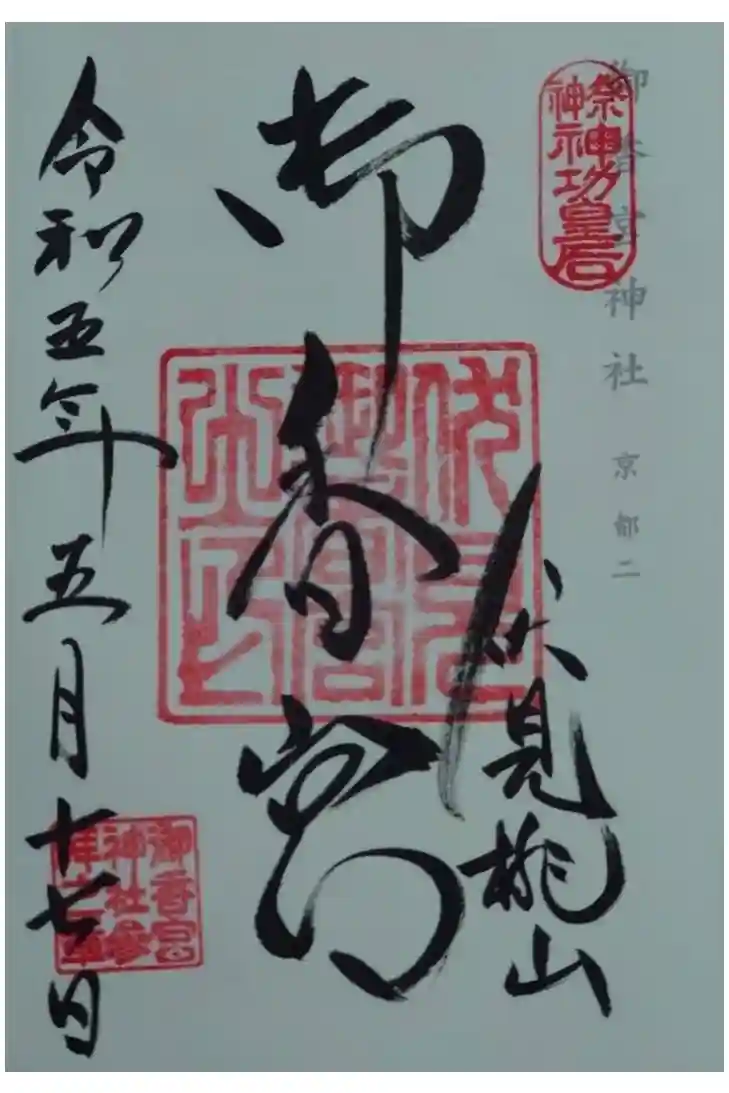 御香宮神社 京都二
祭神
神功皇后
伏見桃山
御香宮
令和五年五月十七日
御香宮
神社参
拝之章